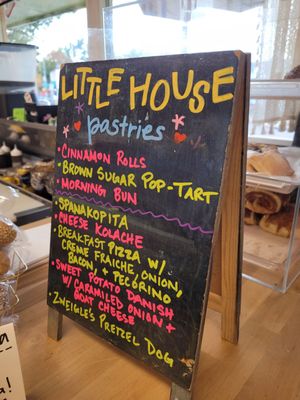 LITTLE HOUSE
pastries
• CINNAMON ROLLS
• BROWN SUGAR POP-TART
• MORNING BUN
• SPANAKOPITA
• CHEESE KOLACHE
• BREAKFAST PIZZA W/
CREME FRAICHE, ONION,
BACON, + PECORINO
• SWEET POTATO DANISH
W/ CARAMILED ONION +
GOAT CHEESE
• ZWEIGLE'S PRETZEL DOG